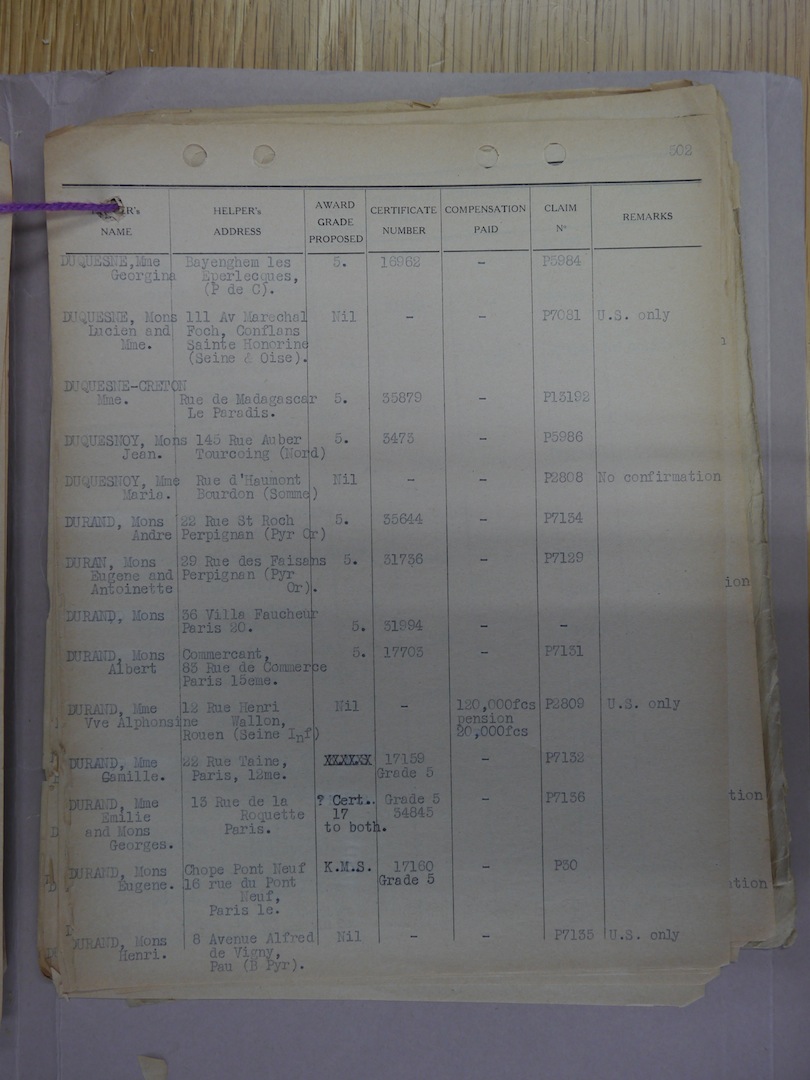 502
ER's NAME HELPER's ADDRESS AWARD GRADE PROPOSED CERTIFICATE NUMBER COMPENSATION PAID CLAIM No REMARKS
DUQUESNE,Mme Bayenghem les 5. 16962 - P5984
Georgina Eperlecques,
(P de C).
DUQUESNE, Mons 111 Av Marechal Nil - - P7031 U.S. only
Lucien and Foch, Conflans
Mme. Sainte Honorine
(Seine & Oise).
DUQUESNE-CRETON
Mme. Rue de Madagascar 5. 35879 - P13192
Le Paradis.
DUQUESNOY, Mons 145 Rue Auber 5. 3473 - P5986
Jean. Tourcoing (Nord)
DUQUESNOY, Mme Rue d'Haumont Nil - - P2808 No confirmation
Maria. Bourdon (Somme)
DURAND, Mons 22 Rue St Roch 5. 35644 - P7134
Andre Perpignan (Pyr Or)
DURAN, Mons 29 Rue des Faisans 5. 31736 - P7129
Eugene and Perpignan (Pyr
Antoinette Or).
ion
DURAND, Mons 36 Villa Faucheur
Paris 20. 5. 31994 - -
DURAND, Mons Commercant, 5. 17703 - P7131
Albert 83 Rue de Commerce
Paris 15eme.
DURAND, Mme 12 Rue Henri Nil - 120,000fcs P2809 U.S. only
Vve Alphonsine Wallon, pension
Rouen (Seine Inf) 20,000fcs
DURAND, Mme 22 Rue Taine, XXXXXX 17159 - P7132
Camille. Paris, 12me. Grade 5
DURAND, Mme 13 Rue de la ? Cert.. Grade 5 - P7136
Emilie Roquette 17 34845
and Mons Paris. to both.
Georges.
tion
DURAND, Mons Chope Pont Neuf K.M.S. 17160 - P30
Eugene. 16 rue du Pont Grade 5
Neuf,
Paris le.
tion
DURAND, Mons 8 Avenue Alfred Nil - - P7135 U.S. only
Henri. de Vigny,
Pau (B Pyr).